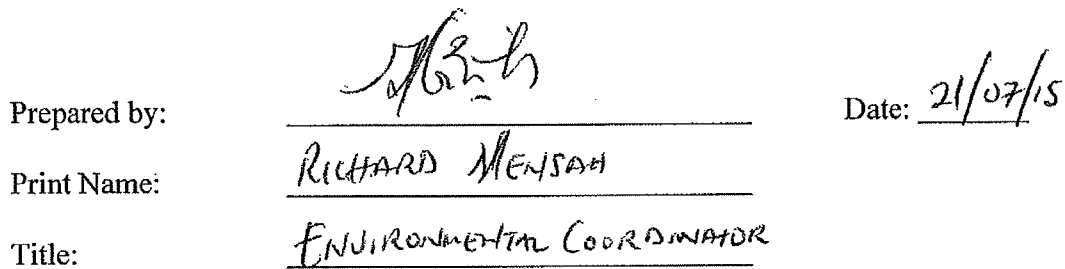 Prepared by: Date: 21/07/15
Print Name: RICHARD MENSAH
Title: ENVIRONMENTAL COORDINATOR